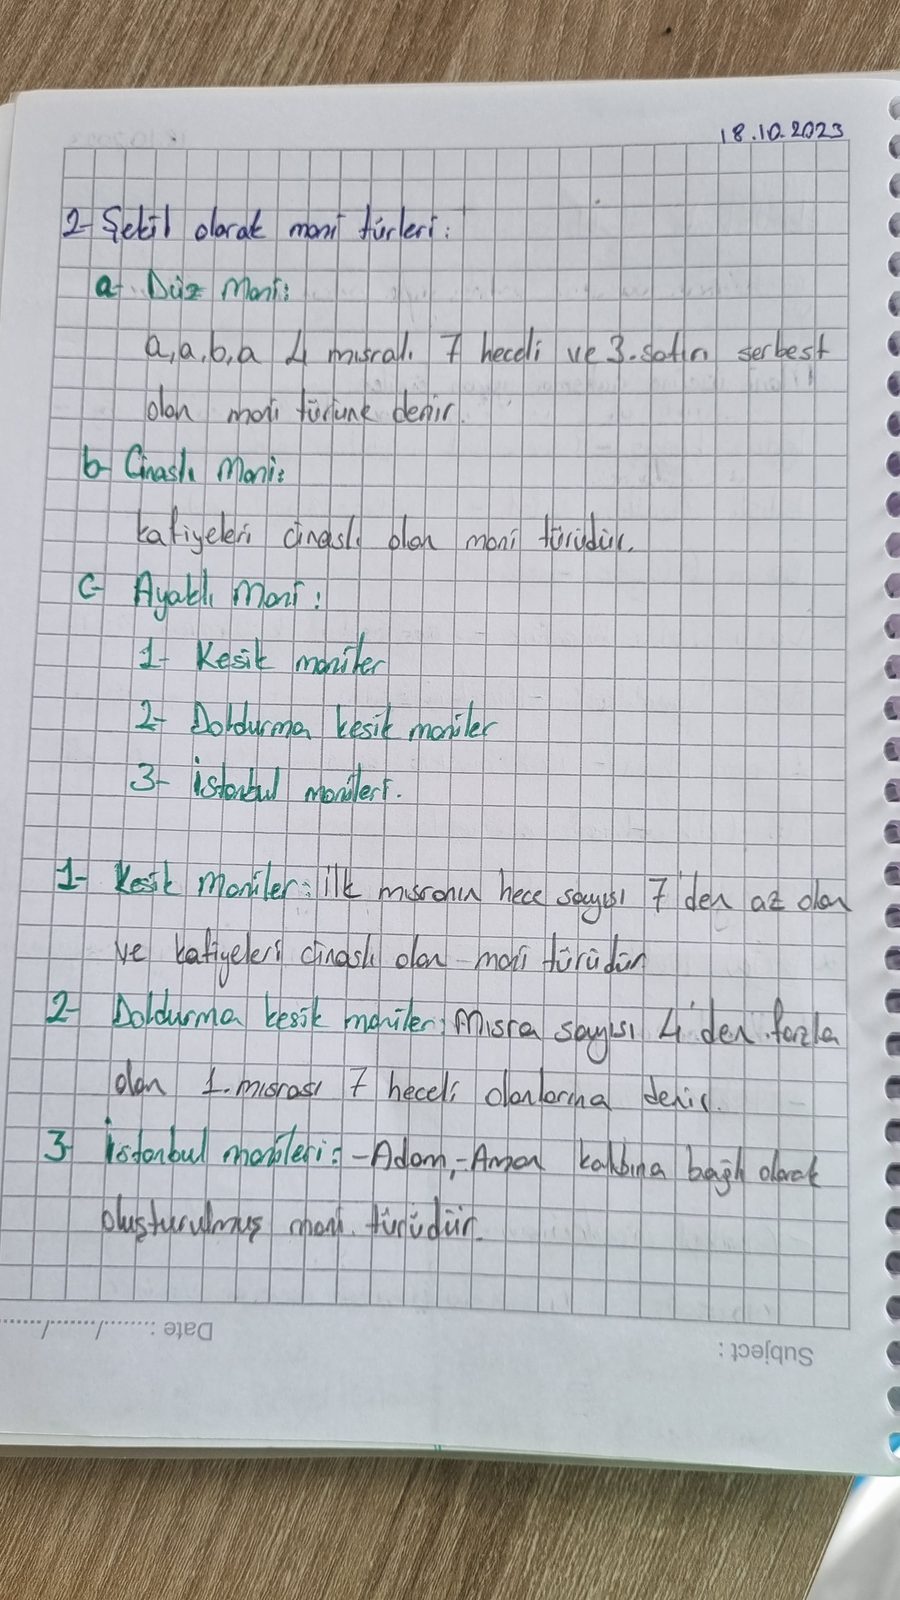 18.10.2023
2- Şekil olarak mani türleri:
a- Düz Mani:
a,a,b,a 4 mısralı 7 heceli ve 3. satırı serbest
olan mani türüne denir.
b- Cinaslı Mani:
kafiyeleri cinaslı olan mani türüdür.
c- Ayaklı Mani:
1- Kesik maniler
2- Doldurma kesik maniler
3- İstanbul manileri.
1- Kesik Maniler: ilk mısranın hece sayısı 7'den az olan
ve kafiyeleri cinaslı olan mani türüdür
2- Doldurma kesik maniler: Mısra sayısı 4'den fazla
olan 1. mısrası 7 heceli olanlarına denir.
3- İstanbul manileri: -Adam, -Aman kalıbına bağlı olarak
oluşturulmuş mani türüdür.
Date : ......./......./.......
Subject :